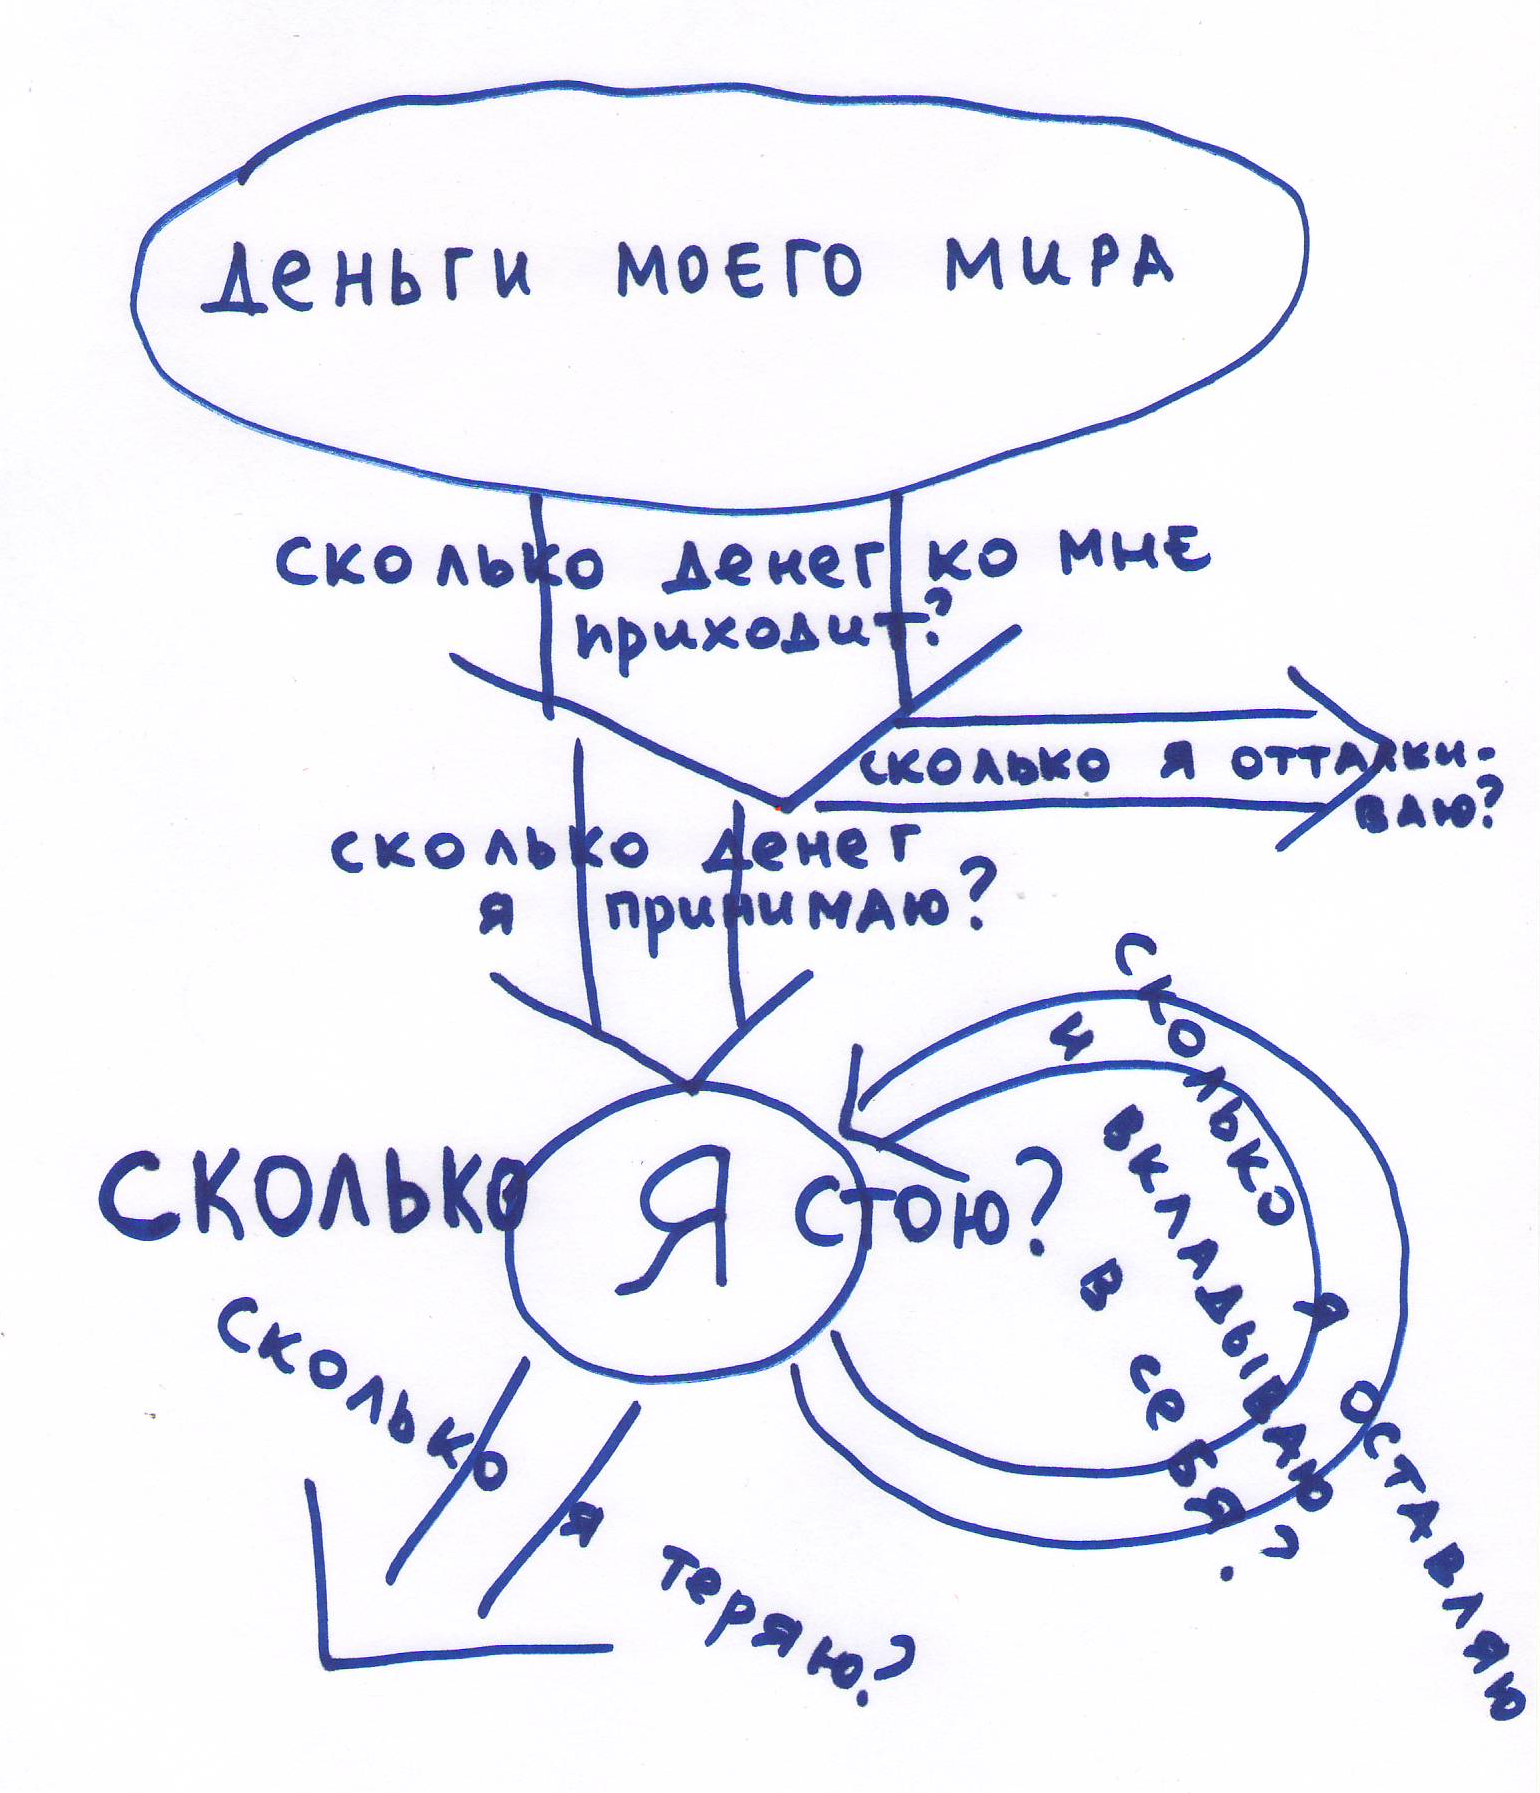 Деньги моего мира
сколько денег ко мне
приходит?
сколько я отталки-
ваю?
сколько денег
я принимаю?
сколько Я стою?
сколько я оставляю
и вкладываю
в себя?
сколько я теряю?